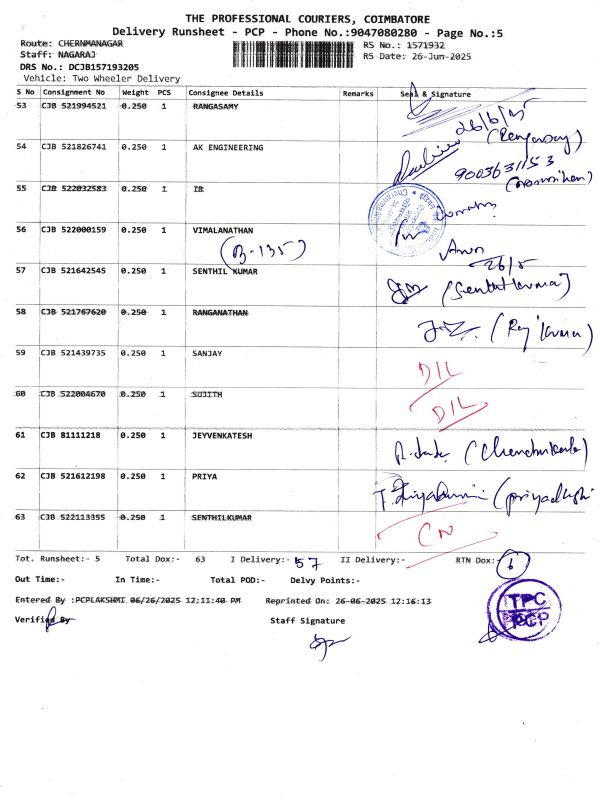 THE PROFESSIONAL COURIERS, COIMBATORE
Delivery Runsheet - PCP - Phone No.:9047080280 - Page No.:5
Route: CHERNMANAGAR RS No.: 1571932
Staff: NAGARAJ RS Date: 26-Jun-2025
DRS No.: DCJB157193205
Vehicle: Two Wheeler Delivery
S No Consignment No Weight PCS Consignee Details Remarks Seal & Signature
53 CJB 521994521 0.250 1 RANGASAMY 26/6/25
54 CJB 521826741 0.250 1 AK ENGINEERING
9003631153
55 CJB 522032583 0.250 1 IB
56 CJB 522000159 0.250 1 VIMALANATHAN
(B-135)
57 CJB 521642545 0.250 1 SENTHIL KUMAR (Senthil kumar)
58 CJB 521767620 0.250 1 RANGANATHAN (Raj kumar)
59 CJB 521439735 0.250 1 SANJAY D/L
60 CJB 522004670 0.250 1 SUJITH D/L
61 CJB 81111218 0.250 1 JEYVENKATESH
62 CJB 521612198 0.250 1 PRIYA
63 CJB 522113355 0.250 1 SENTHILKUMAR CN
Tot. Runsheet:- 5 Total Dox:- 63 I Delivery:- 57 II Delivery:- RTN Dox:- 6
Out Time:- In Time:- Total POD:- Delvy Points:-
Entered By :PCPLAKSHMI 06/26/2025 12:11:40 PM Reprinted On: 26-06-2025 12:16:13
Verified By Staff Signature
TPC
PCP